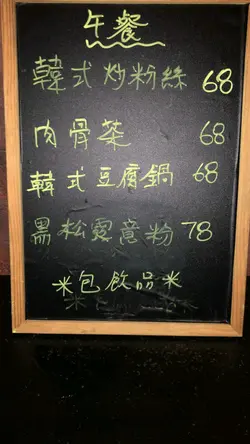 午餐
韓式炒粉絲 68
肉骨茶 68
韓式豆腐鍋 68
黑松露意粉 78
米包飲品米